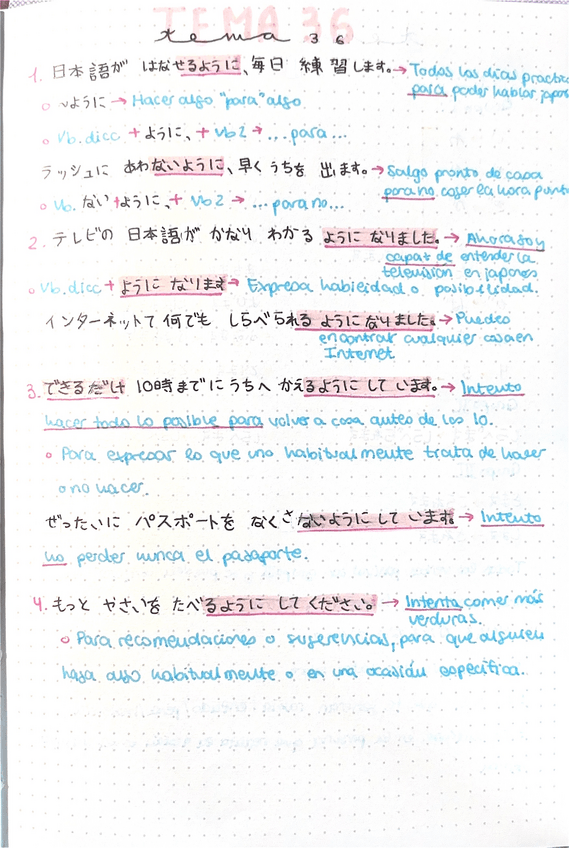 TEMA 36
tema 36
1. 日本語が はなせるように、毎日 練習します。→ Todos los días practico
para poder hablar japon
o Vように → Hacer algo "para" algo
o Vb.dicc + ように、+ Vb2 → ...para...
ラッシュに あわないように、早く うちを 出ます。→ Salgo pronto de casa
para no coger la hora punta
o Vb. ない + ように、+ Vb2 → ...para no...
2. テレビの 日本語が かなり わかる ように なりました。→ Ahora soy
capaz de entender la
televisión en japones
o Vb.dicc + ように なります → Expresa habilidad o posibilidad.
インターネットで 何でも しらべられる ように なりました。→ Puedo
encontrar cualquier cosa en
Internet
3. できるだけ 10時までに うちへ かえるように して います。→ Intento
hacer todo lo posible para volver a casa antes de las 10.
o Para expresar lo que uno habitualmente trata de hacer
o no hacer.
ぜったいに パスポートを なくさないように して います。→ Intento
no perder nunca el pasaporte.
4. もっと やさいを たべるように して ください。→ Intenta comer más
verduras.
o Para recomendaciones o sugerencias, para que alguien
haga algo habitualmente o en una ocasión específica.